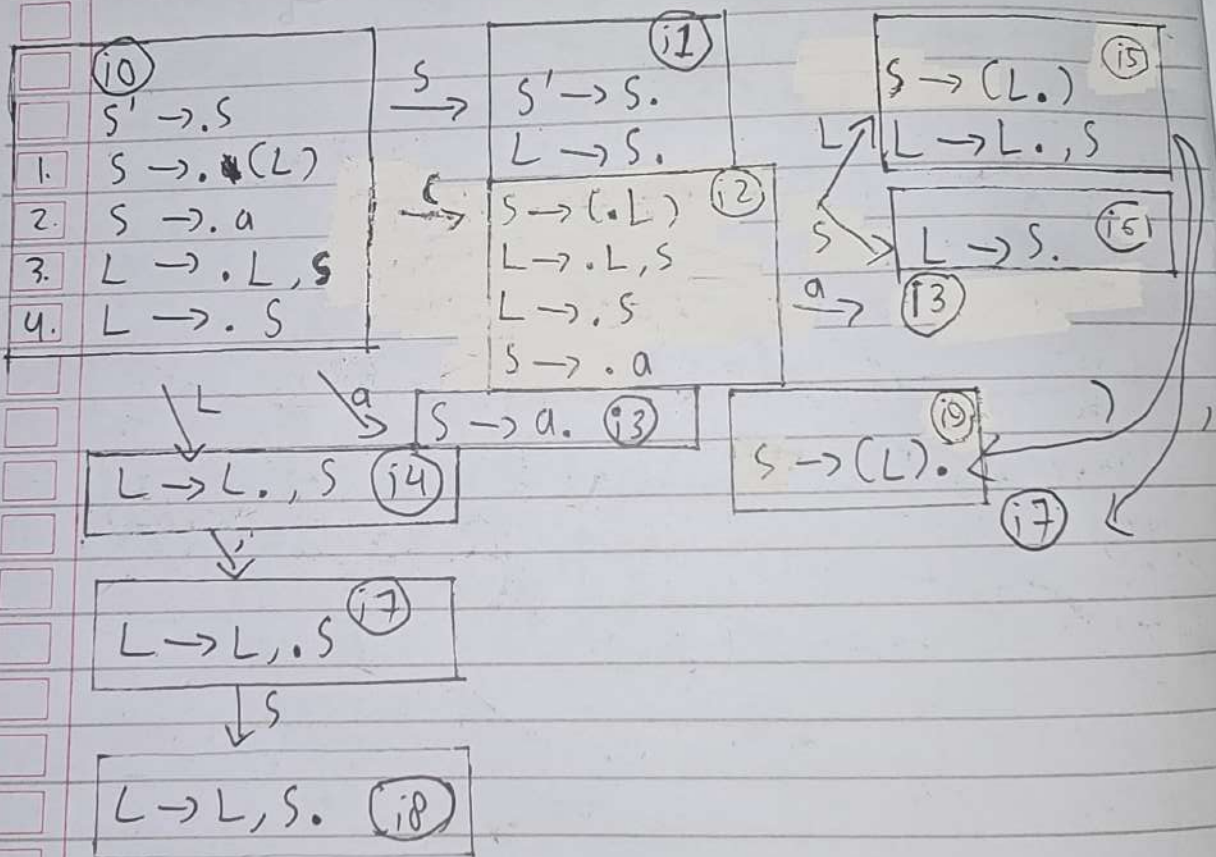 i0
S' →.S
1. S →.(L)
2. S →.a
3. L →.L,S
4. L →.S
S
i1
S' → S.
L → S.
(
i2
S → (.L)
L → .L,S
L → .S
S → .a
L
i5
S → (L.)
L → L.,S
S
i6
L → S.
a
i3
L
a
S → a. i3
i9
S → (L).
)
,
i7
L → L.,S i4
,
i7
L → L,.S
S
L → L,S. i8